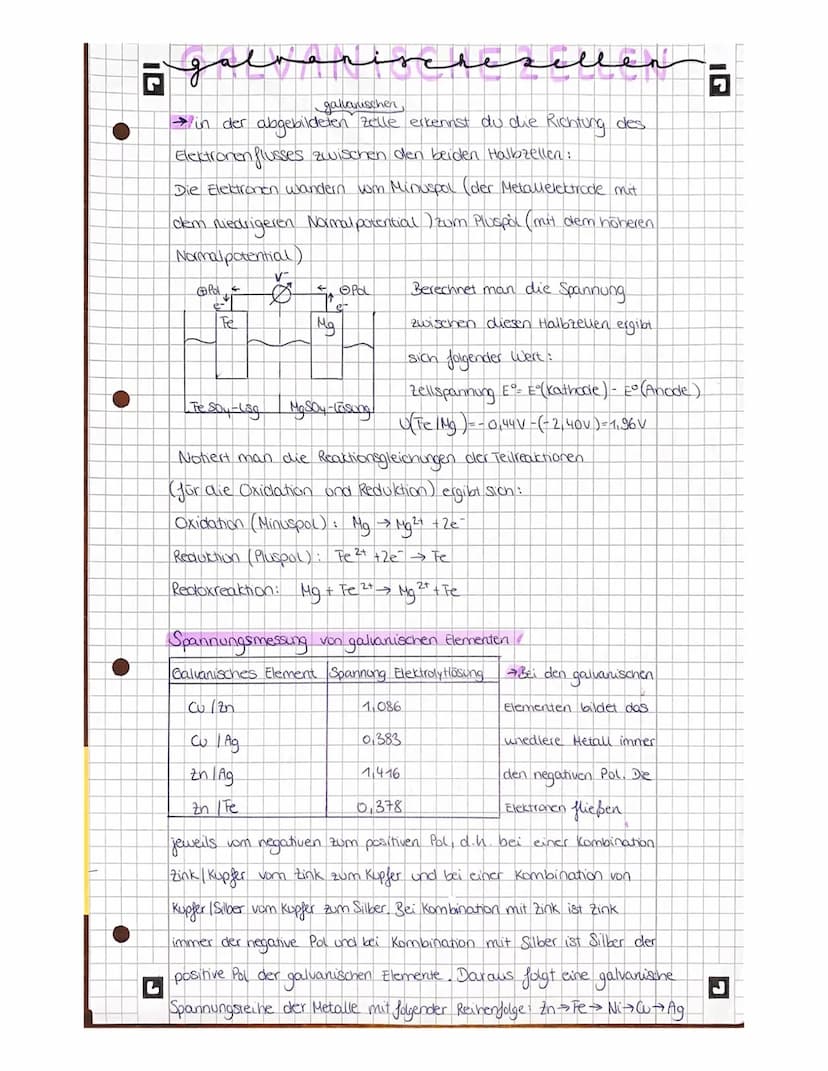 galvanische zellen
GALVANISCHE ZELLEN
galvanischen
→ in der abgebildeten Zelle erkennst du die Richtung des
Elektronenflusses zwischen den beiden Halbzellen:
Die Elektronen wandern vom Minuspol (der Metallelektrode mit
dem niedrigeren Normalpotential) zum Pluspol (mit dem höheren
Normalpotential)
⊕Pol ← V ← ⊖Pol
e⁻ e⁻
Fe Mg
FeSO₄-Lsg MgSO₄-Lösung
Berechnet man die Spannung
zwischen diesen Halbzellen ergibt
sich folgender Wert:
Zellspannung E°= E°(Kathode) - E°(Anode)
U(Fe/Mg)=-0,44V-(-2,40V)=1,96V
Notiert man die Reaktionsgleichungen der Teilreaktionen
(für die Oxidation und Reduktion) ergibt sich:
Oxidation (Minuspol): Mg → Mg²⁺ +2e⁻
Reduktion (Pluspol): Fe²⁺ +2e⁻ → Fe
Redoxreaktion: Mg + Fe²⁺ → Mg²⁺ + Fe
Spannungsmessung von galvanischen Elementen
Galvanisches Element Spannung Elektrolytlösung
Cu / Zn 1,086
Cu / Ag 0,383
Zn / Ag 1,416
Zn / Fe 0,378
→ Bei den galvanischen
Elementen bildet das
unedlere Metall immer
den negativen Pol. Die
Elektronen fließen
jeweils vom negativen zum positiven Pol, d.h. bei einer Kombination
Zink/Kupfer vom Zink zum Kupfer und bei einer Kombination von
Kupfer/Silber vom Kupfer zum Silber. Bei Kombination mit Zink ist Zink
immer der negative Pol und bei Kombination mit Silber ist Silber der
positive Pol der galvanischen Elemente. Daraus folgt eine galvanische
Spannungsreihe der Metalle mit folgender Reihenfolge: Zn→Fe→Ni→Cu→Ag